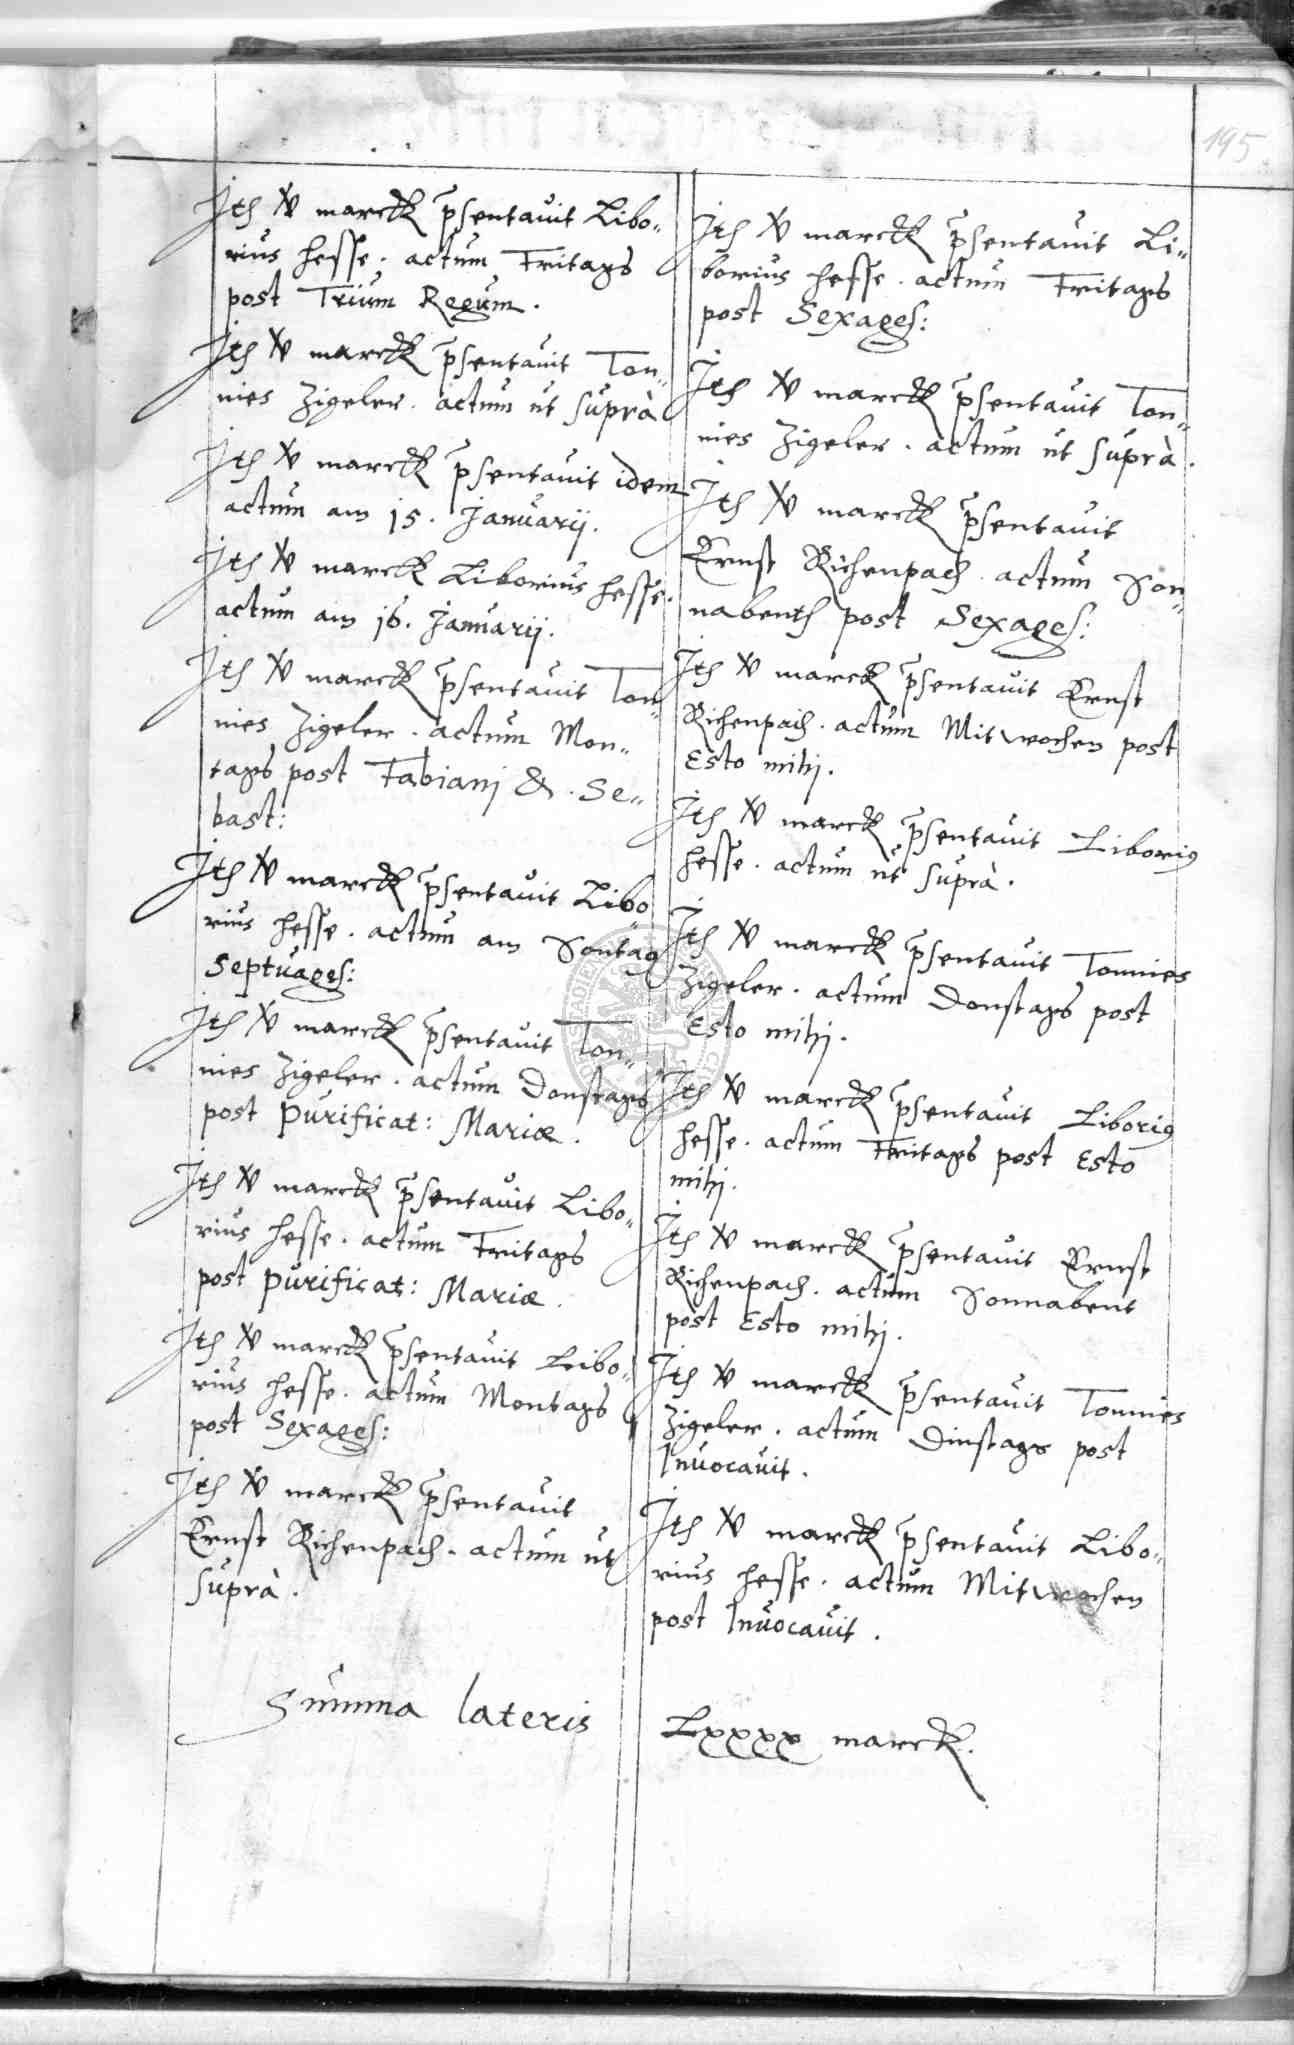 195
Jtꝭ v̷ marck p̄sentauit Libo„
rius Hesse . actum Fritags
post Trium Regum .
Jtꝭ v̷ marck p̄sentauit Ton„
nies Zigeler . actum ut suprà
Jtꝭ v̷ marck p̄sentauit idem
actum am 15 . Januarij .
Jtꝭ v̷ marck Liborius Hesse .
actum am 16 . Januarij .
Jtꝭ v̷ marck p̄sentauit Ton„
nies Zigeler . actum Mon„
tags post Fabianj & . Se„
bast :
Jtꝭ v̷ marck p̄sentauit Libo„
rius Hesse . actum am Sontag
Septuages :
Jtꝭ v̷ marck p̄sentauit Ton„
nies Zigeler . actum Donstags
post Purificat : Mariæ .
Jtꝭ v̷ marck p̄sentauit Libo„
rius Hesse . actum Fritags
post Purificat : Mariæ .
Jtꝭ v̷ marck p̄sentauit Libo„
rius Hesse . actum Montags
post Sexages :
Jtꝭ v̷ marck p̄sentauit
Ernst Richenpach . actum ut
suprà .
Jtꝭ v̷ marck p̄sentauit Li„
borius Hesse . actum Fritags
post Sexages :
Jtꝭ v̷ marck p̄sentauit Ton„
nies Zigeler . actum ut suprà .
Jtꝭ v̷ marck p̄sentauit
Ernst Richenpach . actum Son„
nabenth post Sexages :
Jtꝭ v̷ marck p̄sentauit Ernst
Richenpach . actum Mitwochen post
Esto mihj .
Jtꝭ v̷ marck p̄sentauit Liboriꝰ
Hesse . actum ut suprà .
Jtꝭ v̷ marck p̄sentauit Tonnies
Zigeler . actum Donstags post
Esto mihj .
Jtꝭ v̷ marck p̄sentauit Liboriꝰ
Hesse . actum Fritags post Esto
mihj .
Jtꝭ v̷ marck p̄sentauit Ernst
Richenpach . actum Sonnabent
post Esto mihj .
Jtꝭ v̷ marck p̄sentauit Tonnies
Zigeler . actum Dinstags post
Invocauit .
Jtꝭ v̷ marck p̄sentauit Libo„
rius Hesse . actum Mitwochen
post Invocauit .
Summa lateris Lxxxx marck .